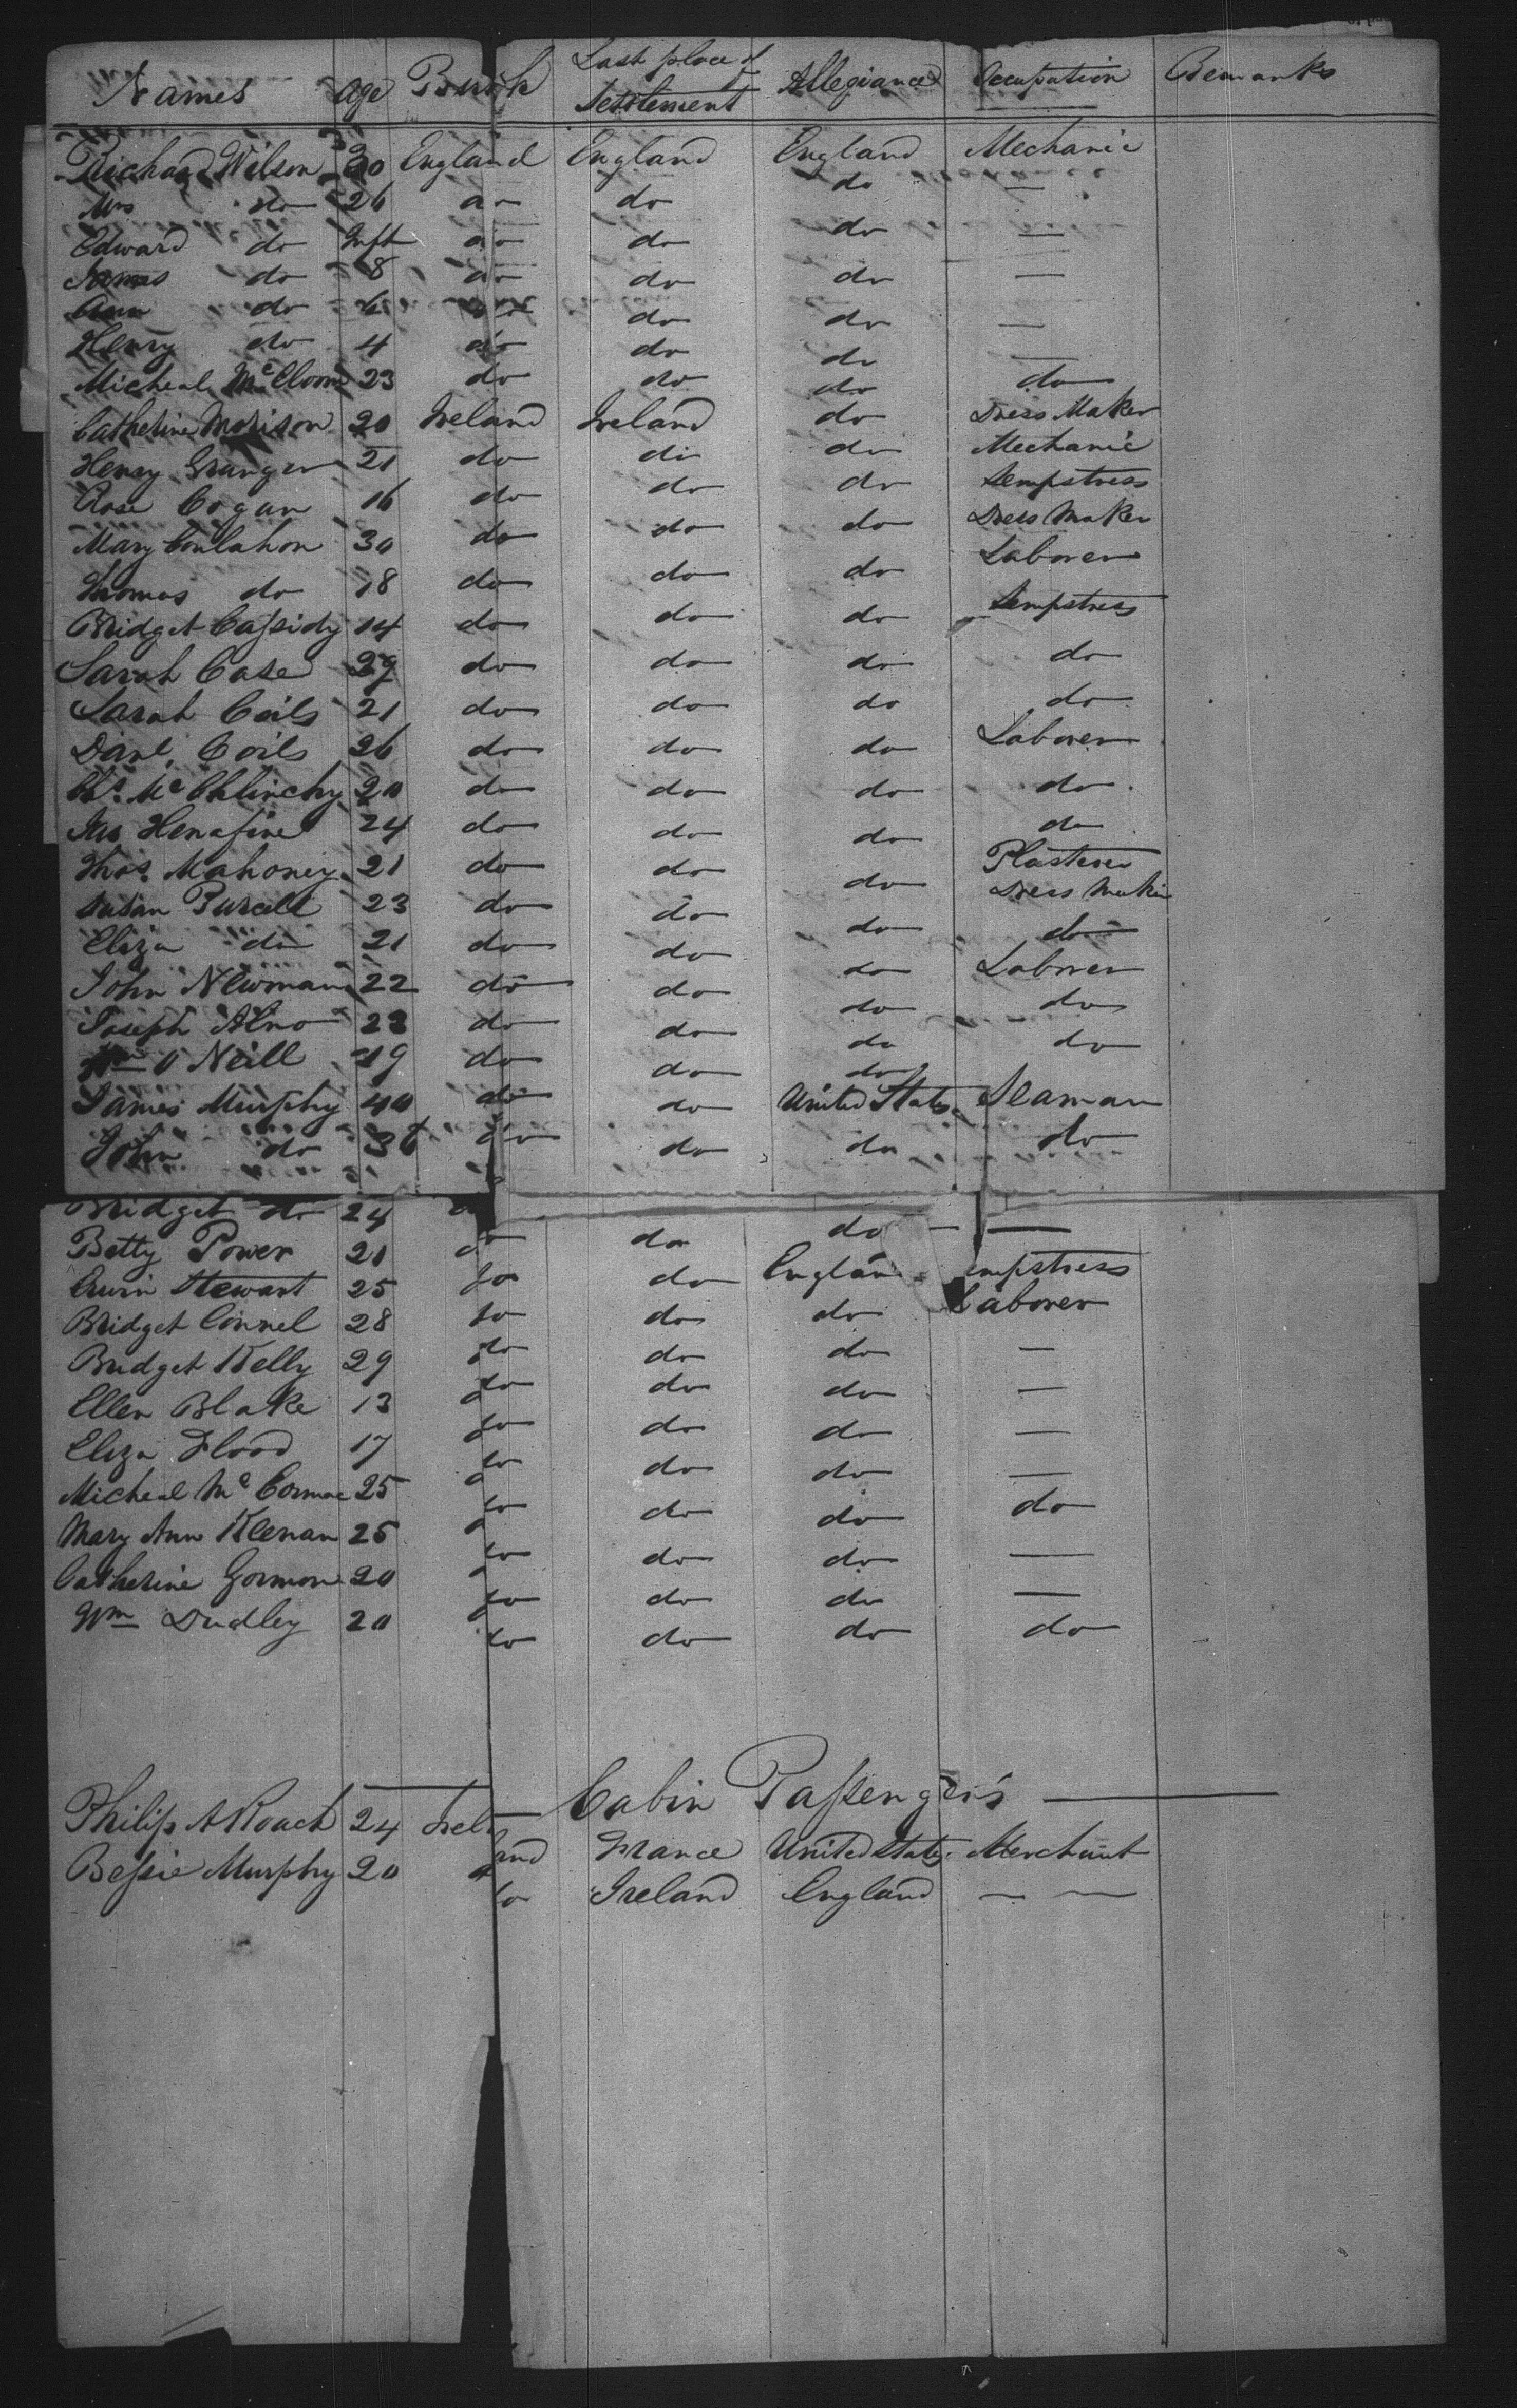 Names Age Birth Last place of Settlement Allegiance Occupation Remarks
Richard Wilson 30 England England England Mechanic
Mrs do 26 do do do —
Edward do Inft do do do —
James do 8 do do do —
Ann do 6 do do do —
Henry do 4 do do do —
Micheal 23 do do do do
Catherine Morison 20 Ireland Ireland do Dress Maker
Henry Granger 21 do do do Mechanic
Rose Cogan 16 do do do Sempstress
Mary Conlahon 30 do do do Dress Maker
Thomas do 18 do do do Laborer
Bridget Caſsidy 14 do do do Sempstress
Sarah Case 29 do do do do
Sarah Coils 21 do do do do
Danl. Coils 26 do do do Laborer
Mc Chlinchy 20 do do do do
Jas 24 do do do do
Thos. Mahoney 21 do do do Plasterer
Susan Purcell 23 do do do Dress Maker
Eliza do 21 do do do do
John Newman 22 do do do Laborer
Joseph 22 do do do do
Wm O Neill 19 do do do do
James Murphy 40 do do United States Seaman
John do 36 do do do do
Bridget do 24 do do do —
Betty Power 21 do do England empstress
Stewart 25 do do do Laborer
Bridget Connel 28 do do do —
Bridget Kelly 29 do do do —
Ellen Blake 13 do do do —
Eliza Flood 17 do do do —
Micheal Mc Cormac 25 do do do do
Mary Ann Keenan 25 do do do —
Catherine Gormon 20 do do do —
Wm Dudley 20 do do do do
— Cabin Paſsengers —
Philip A Roach 24 Ireland France United States Merchant
Beſsie Murphy 20 do Ireland England — —